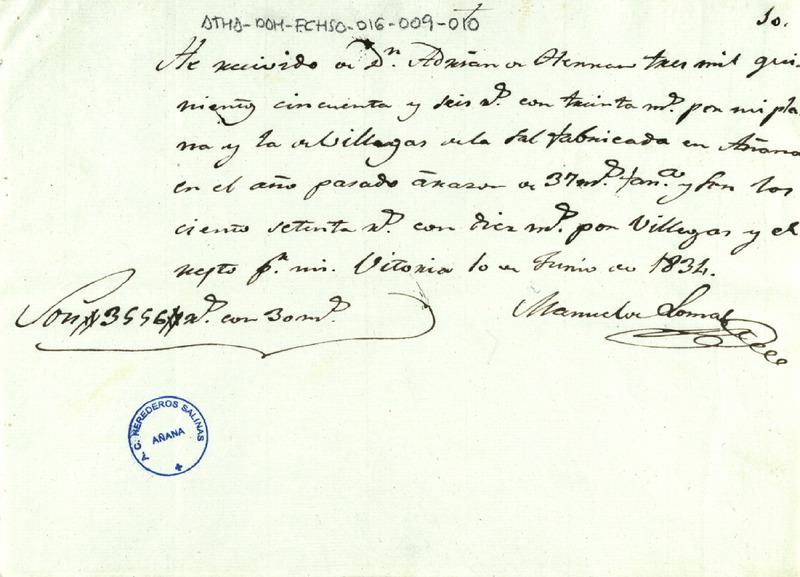 ATHA-DOH-FCHSO-016-009-010
10.
He recivido de Dn. Adrian de Herran tres mil qui
niento cincuenta y seis rs. con treinta ms. por mi pla
na y la de Villegas de la Sal fabricada en Añana
en el año pasado á razon de 37 ms. fan.a y son los
ciento setenta rs. con diez ms. por Villegas y el
resto pr. mi. Vitoria 10 de Junio de 1834.
Son 3556 rs. con 30 ms.
Manuel de
C. HEREDEROS SALINAS
AÑANA